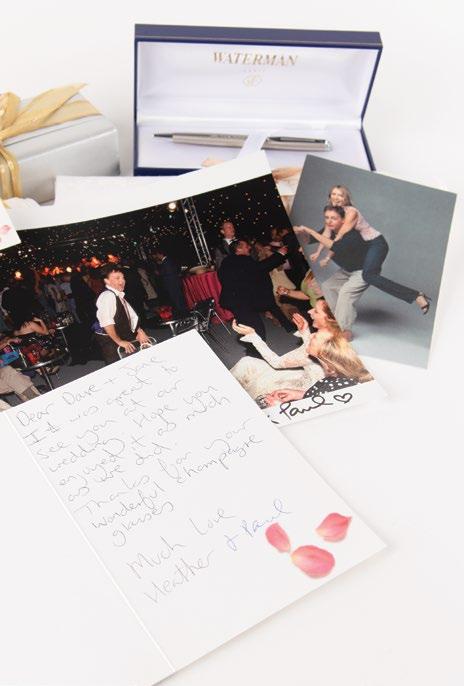 WATERMAN
PARIS
Paul ♡
Dear Dave + Jane
It was great to
see you at our
wedding. Hope you
enjoyed it as much
as we did.
Thanks for your
wonderful champagne
glasses
Much Love
Heather + Paul